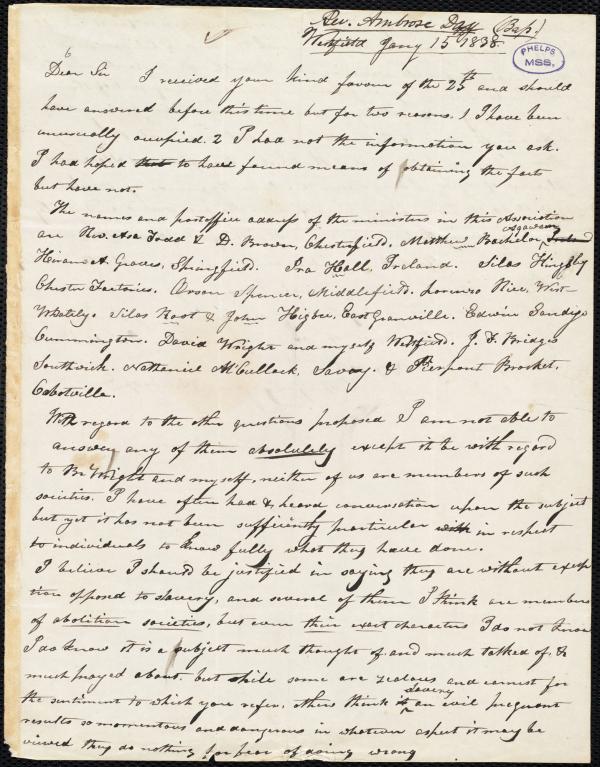 Rev. Ambrose Day (Bap.)
Westfield Jany 15 1838.
PHELPS
MSS.
6
Dear Sir I received your kind favour of the 25th and should
have answered before this time but for two reasons. 1 I have been
unusually occupied. 2 I had not the information you ask.
I had hoped that to have found means of obtaining the facts
but have not.
The names and postoffice address of the ministers in this Association
are Rev. Asa Todd & D. Brown, Chesterfield. Matthew Bachelor, Agawam
Hiram A. Graves, Springfield. Ira Hall, Ireland. Silas
Chester Factories. Orson Spencer, Middlefield. Lorenzo Rice, West-
Whately. Silas Root & John Higbee, East Granville. Edwin
Cummington. David Wright and myself Westfield. J. F. Bridges
Southwick. Nathaniel McCullock, Savoy. & Pierpont Brocket,
Cabotville.
With regard to the other questions proposed I am not able to
answer any of them absolutely except it be with regard
to Br Wright and myself, neither of us are members of such
societies. I have often had & heard conversation upon the subject
but yet it has not been sufficiently particular with in respect
to individuals to know fully what they have done.
I believe I should be justified in saying they are without excep
tion opposed to slavery, and several of them I think are members
of abolition societies, but even their exact characters I do not know
I do know it is a subject much thought of and much talked of, &
much prayed about. but while some are zealous and earnest for
the sentiment to which you refer, others think slavery an evil pregnant
results so momentous and dangerous in whatever aspect it may be
viewed they do nothing for fear of doing wrong